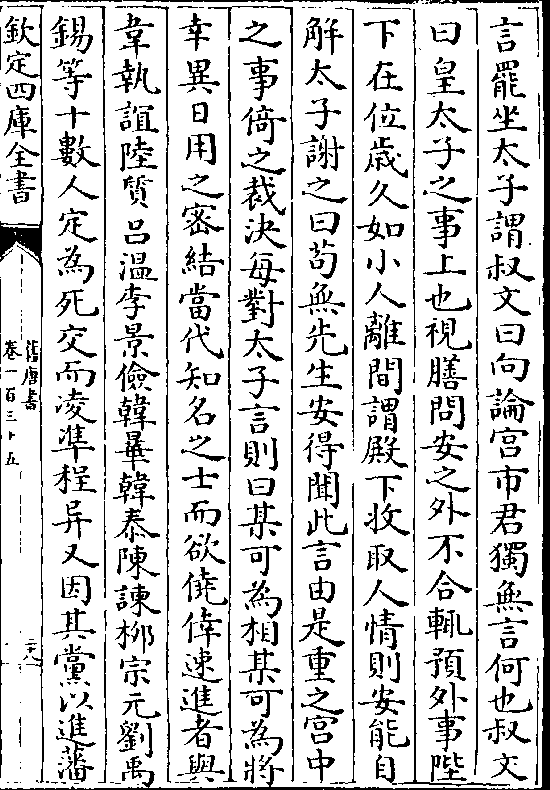 言罷坐太子謂叔文曰向論宫市君獨無言何也叔文
曰皇太子之事上也視膳問安之外不合輒預外事陛
下在位歳久如小人離間謂殿下收取人情則安能自
解太子謝之曰苟無先生安得聞此言由是重之宫中
之事倚之裁決每對太子言則曰某可為相某可為將
幸異日用之密結當代知名之士而欲僥倖速進者與
韋執誼陸質吕温李景儉韓曅韓泰陳諫栁宗元劉禹
錫等十數人定為死交而凌凖程异又因其黨以進藩
欽定四庫全書
舊唐書
卷一百三十五
二十八